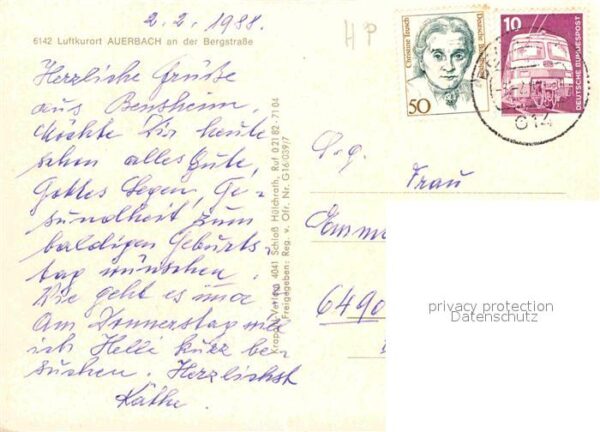 2.2.1988.
6142 Luftkurort AUERBACH an der Bergstraße
H P
Herzliche Grüße
aus Bensheim.
Möchte Dir heute
schon alles Gute,
Gottes Segen, Ge-
sundheit zum
baldigen Geburts-
tag wünschen.
Wie geht es
Am Donnerstag will
ich Helli kurz be-
suchen. Herzlichst
Käthe.
Krapohl-Verlag 4041 Schloß Hülchrath, Ruf 0 21 82 - 71 04
Freigegeben: Reg. v. Ofr. Nr. G16/039/7
50
Christine Teusch
Deutsche Bundespost
10
DEUTSCHE BUNDESPOST
614
Frau
Emm
6490
privacy protection
Datenschutz